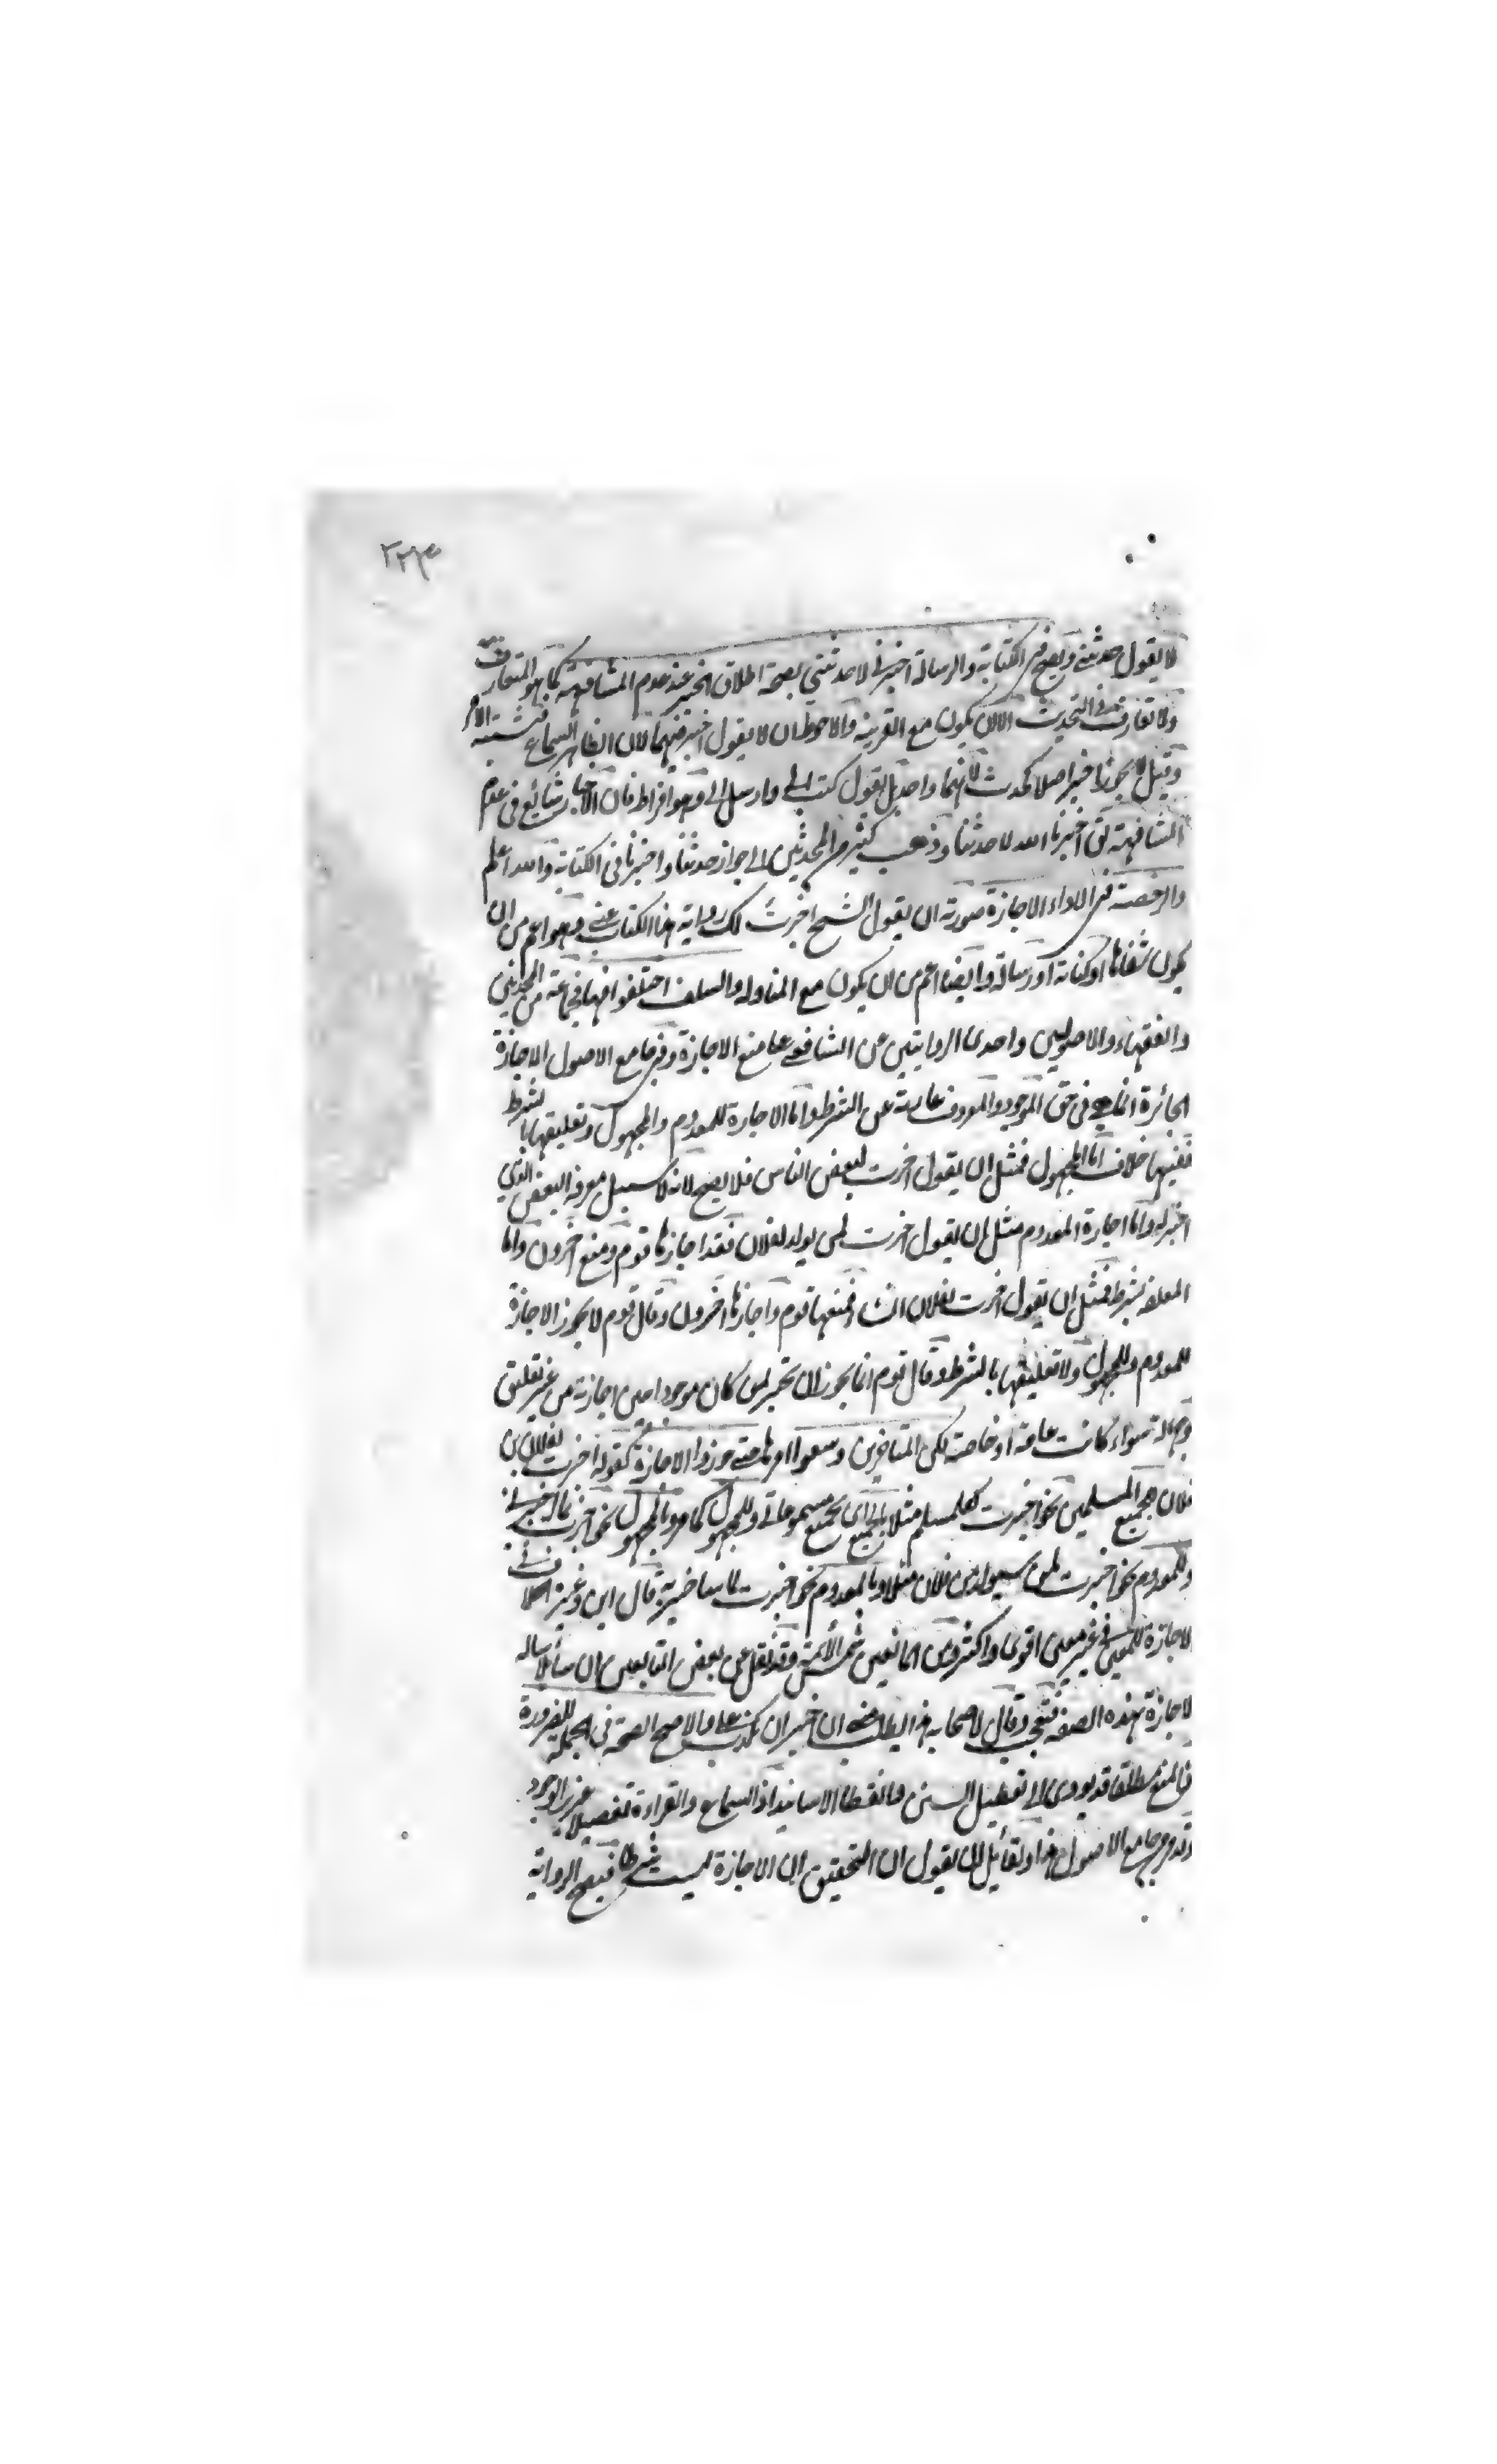 ٢٢٣
لا يقول حدثني ويصح في الكتابة والرسالة اخبرني لا حدثني بصحة اطلاق الخبر عند عدم المشافهة كما هو المتعارف
ولا تعارف في التحديث الا ان يكون مع القرينة والاحوط ان لا يقول اخبر فيهما لان الظاهر السماع فيشتبه الامر
وقيل لا يجوز اخبر اصلا كحدث لانهما واحد بل يقول كتب الي وارسل الي وهو افراط فان الاخبار شائع في عدم
المشافهة نحو اخبرنا الله لا حدثنا وذهب كثير من المحدثين الى جواز حدثنا واخبرنا في الكتابة والله اعلم
والرخصة في الاداء الاجازة صورته ان يقول الشيخ اجزت لك رواية هذا الكتاب عني وهو اعم من ان
يكون شفاها او كتابة او رسالة وايضا اعم من ان يكون مع المناولة والسلف اختلفوا فيها فجماعة من المحدثين
والفقهاء والاصوليين واحدى الروايتين عن الشافعي على منع الاجازة وفي جامع الاصول الاجازة
الجائزة انما هي في حق الموجود المعروف عارية عن الشرط واما الاجازة للمعدوم والمجهول وتعليقها بالشرط
ففيها خلاف اما المجهول فمثل ان يقول اجزت لبعض الناس فلا يصح لانه لا سبيل معرفة البعض الذي
اجيز له واما اجازة المعدوم مثل ان يقول اجزت لمن يولد لفلان فقد اجازها قوم ومنع آخرون واما
المعلقة بشرط فمثل ان يقول اجزت لفلان ان شاء فمنعها قوم واجازها آخرون وقال قوم لا يجوز الاجازة
للمعدوم وللمجهول ولا تعليقها بالشرط وقال قوم انما يجوز ان تجيز لمن كان موجودا حين اجازته من غير تعليق
سواء كانت عامة او خاصة لكن المتأخرين وسعوا امرها حتى جوزوا الاجازة كقوله اجزت لفلان بن
فلان لجميع المسلمين نحو اجزت لكل مسلم مثلا بالجميع اي بجميع مسموعاتي وللمجهول كما مر وبالمجهول نحو اجزت
وللمعدوم نحو اجزت لمن سيولد من فلان مثلا وبالمعدوم نحو اجزت لما ساخبر به قال
الاجازة للمعين في غير معين اقوى واكثر ومن المانعين شمس الائمة وقد نقل عن بعض التابعين ان سائلا سأله
الاجازة بهذه الصفة فتعجب وقال لاصحابه هذا يطلب مني ان اجيز ان يكذب علي والاصح الصحة في الجملة للضرورة
فالمنع مطلقا قد يؤدي الى تعطيل السنن وانقطاع الاسانيد اذ السماع والقراءة تفصيلا عزيز الوجود
وقد مر جامع الاصول هذا ولقائل ان يقول ان التحقيق ان الاجازة ليست شرطا فتصح الرواية